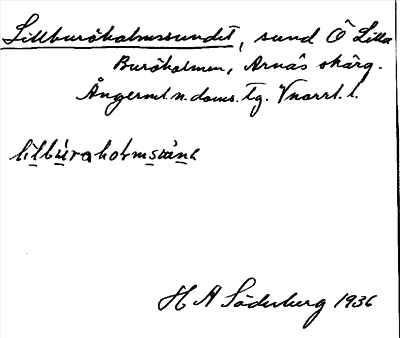 Lillburöholmssundet, sund Ö Lilla
Buröholmen, Arnäs skärg.
Ångerml. n. doms. tg. V norrl. l.
H A Söderberg 1936